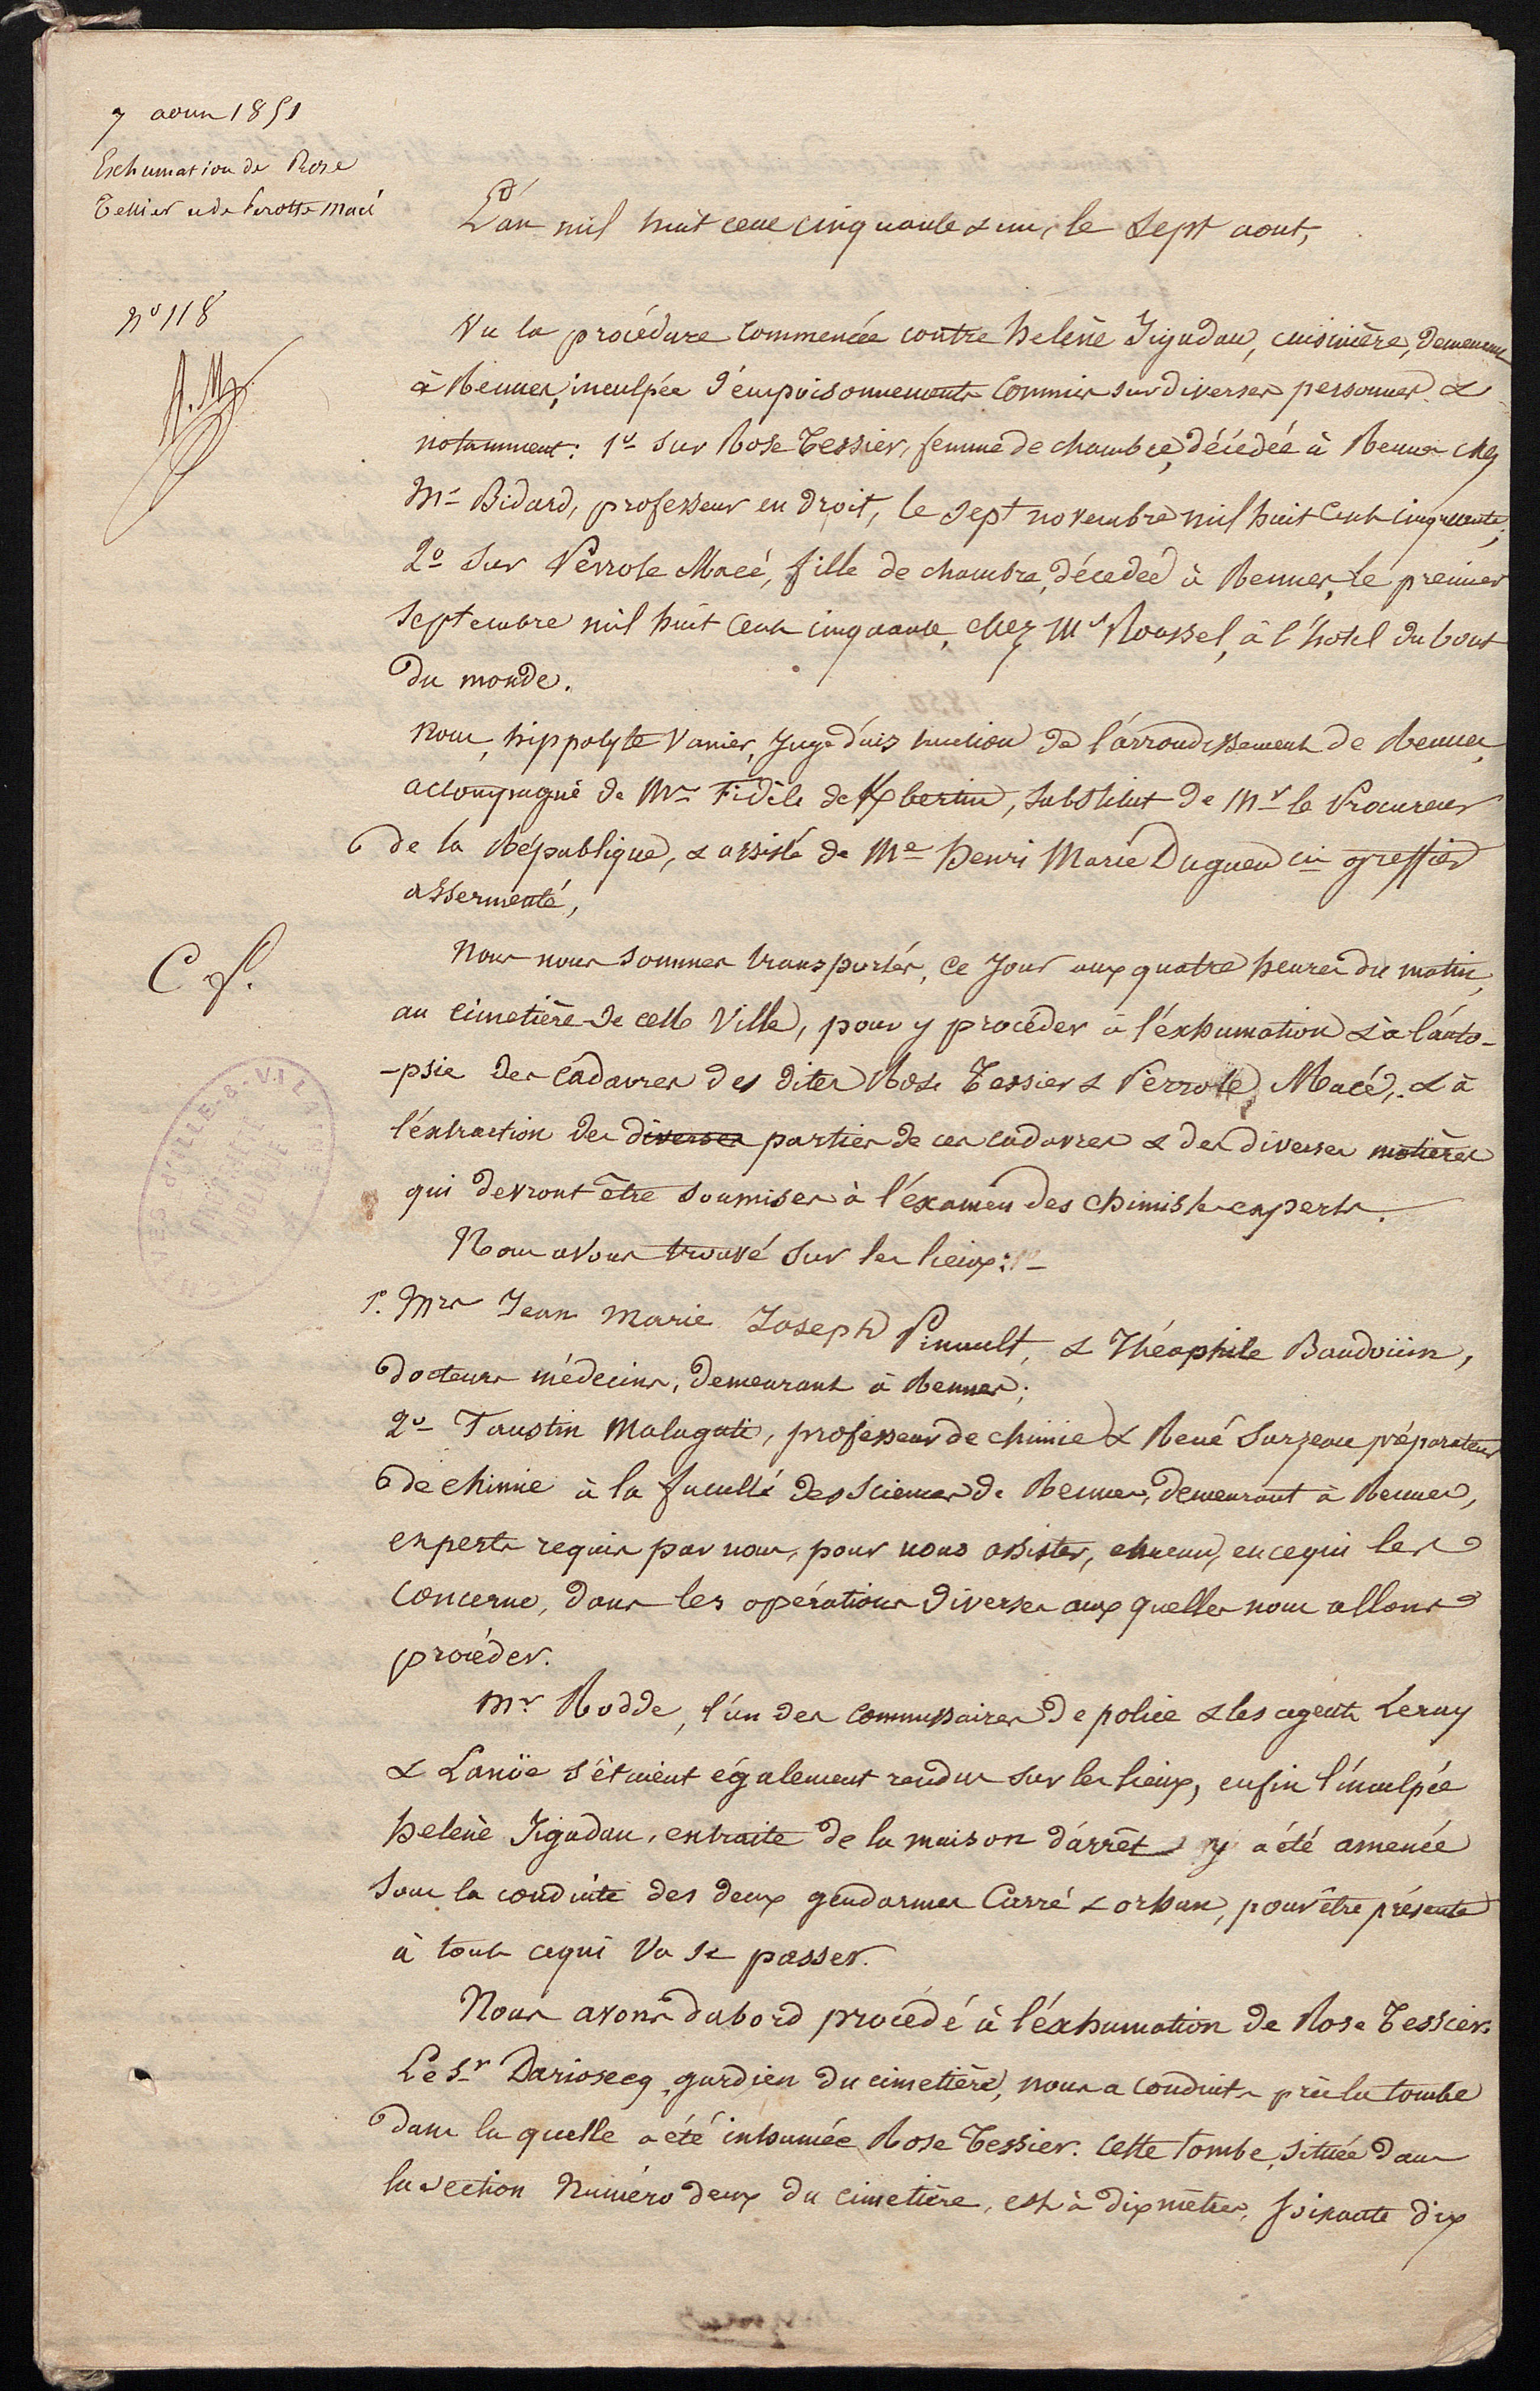 7 aout 1851
Exhumation de Rose
Tessier et de Perotte Macé
L'an mil huit cent cinquante & un, le sept aout,
n° 118
Vu la procédure commencée contre helène Jégadau, cuisinière, demeurant
à Rennes, inculpée d'empoisonnements commis sur diverses personnes &
notamment: 1° sur Rose Tessier, femme de chambre, décédée à Rennes chez
Mr Bidard, professeur en droit, le sept novembre mil huit cent cinquante;
2° sur Perrote Macé, fille de chambre, décédeé à Rennes, le premier
septembre mil huit cent cinquante, chez Mr Roussel, à l'hotel du bout
du monde.
Nous, hippolyte Vanier, juge d'instruction de l'arrondissement de Rennes,
accompagné de Mr Fidèle de Kbertin, substitut de Mr le Procureur
de la République, & assisté de Me henri Marie Dugueu cis greffier
assermenté,
Nous nous sommes transportés, ce jour aux quatre heures du matin,
C f.
au cimetière de cette Ville, pour y procéder à l'exhumation & à l'auto-
-psie des cadavres des dites Rose Tessier & Perrote Macé, & à
l'extraction des diverses parties de ces cadavres & des diverses matières
qui devront être soumises à l'éxamen des chimistes experts.
Nous avons trouvé sur les lieux: 1°
1° Mrs Jean Marie Joseph Pinault, & Théophile Baudoüin,
docteurs médecins, demeurant à Rennes;
2° Faustin Malaguti, professeur de chimie & René Sarzeau préparateur
de chimie à la faculté des sciences de Rennes, demeurant à Rennes,
experts requis par nous, pour nous assister, chacun, en ce qui les
concerne, dans les opérations diverses aux quelles nous allons
procéder.
Mr Rodde, l'un des commissaires de police & les agents Leray
& Lanöe s'étaient également rendus sur les lieux, enfin l'inculpée
helène Jégadau, extraite de la maison d'arrêt y a été amenée
sous la conduite des deux gendarmes Carré & orhan, pour être présente
à tout ce qui va se passer.
Nous avons d'abord procédé à l'éxhumation de Rose Tessier.
Le Sr Dariosecq, gardien du cimetière, nous a conduits près la tombe
dans la quelle a été inhumée Rose Tessier. Cette tombe, située dans
la section Numéro deux du cimetière, est à dix mètres, soixante dix